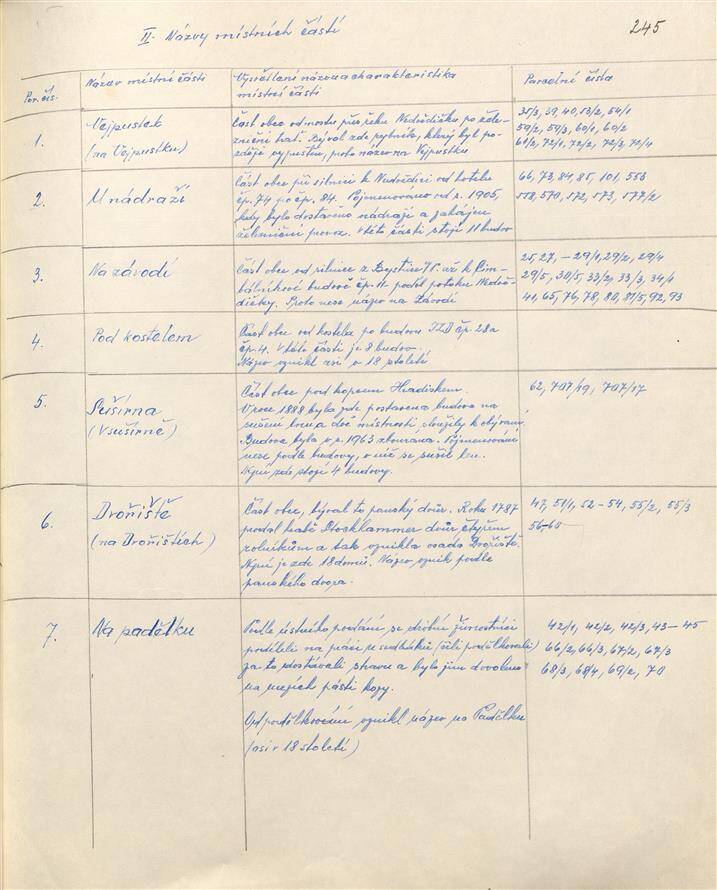 245
II. Názvy místních částí
Poř. čís.
Název místní části
Vysvětlení názvu a charakteristika
místní části
Parcelní čísla
1.
Vejpustek
(na Vejpustku)
Část obce od mostu přes řeku Nedvědičku po želez-
niční trať. Býval zde rybník, který byl po-
zději vypuštěn, proto název na Vejpustku
35/3, 39, 40, 53/2, 54/1
59/2, 59/3, 60/1, 60/2
61/2, 72/1, 72/2, 72/3, 72/4
2.
U nádraží
Část obce při silnici k Nedvědici od hotelu
čp. 74 po čp. 84. Pojmenováno od r. 1905,
kdy bylo dostavěno nádraží a zahájen
železniční provoz. V této části stojí 11 budov
66, 73, 84, 85, 101, 553
558, 570, 172, 173, 177/2
3.
Na závodí
Část obce od silnice z Bystřice n/P. až k
budově čp. 11. podél potoku Nedvě-
dičky. Proto nese název na Závodí
25, 27, – 29/1, 29/2, 29/4
29/5, 30/5, 33/2, 33/3, 34/1
41, 65, 76, 78, 80, 81/5, 92, 93
4.
Pod kostelem
Část obce od kostela po budovu JZD čp. 28 a
čp. 4. V této části je 8 budov.
Název vznikl asi v 18 století
5.
Sušírna
(V sušírně)
Část obce pod kopcem Hradiskem.
V roce 1888 byla zde postavena budova na
sušení lnu a dvě místnosti sloužily k obývání
Budova byla v r. 1963 zbourána. Pojmenování
nese podle budovy, v níž se sušil len.
Nyní zde stojí 4 budovy.
62, 707/19, 707/17
6.
Dvořiště
(na Dvořištích)
Část obce, býval to panský dvůr. Roku 1787
prodal hrabě Stockhammer dvůr čtyřem
rolníkům a tak vznikla osada Dvořiště.
Nyní je zde 18 domů. Název vznik podle
panského dvora.
47, 51/1, 52 – 54, 55/2, 55/3
56-60
7.
Na padělku
Podle ústního podání se drobní živnostníci
podíleli na práci u sedláků (čili podělkovali)
za to dostávali stravu a bylo jim dovoleno
na mezích pásti kozy.
Od podělkování vznikl název na Padělku
(asi v 18 století)
42/1, 42/2, 42/3, 43 – 45
66/2, 66/3, 67/2, 67/3
68/3, 68/4, 69/2, 70